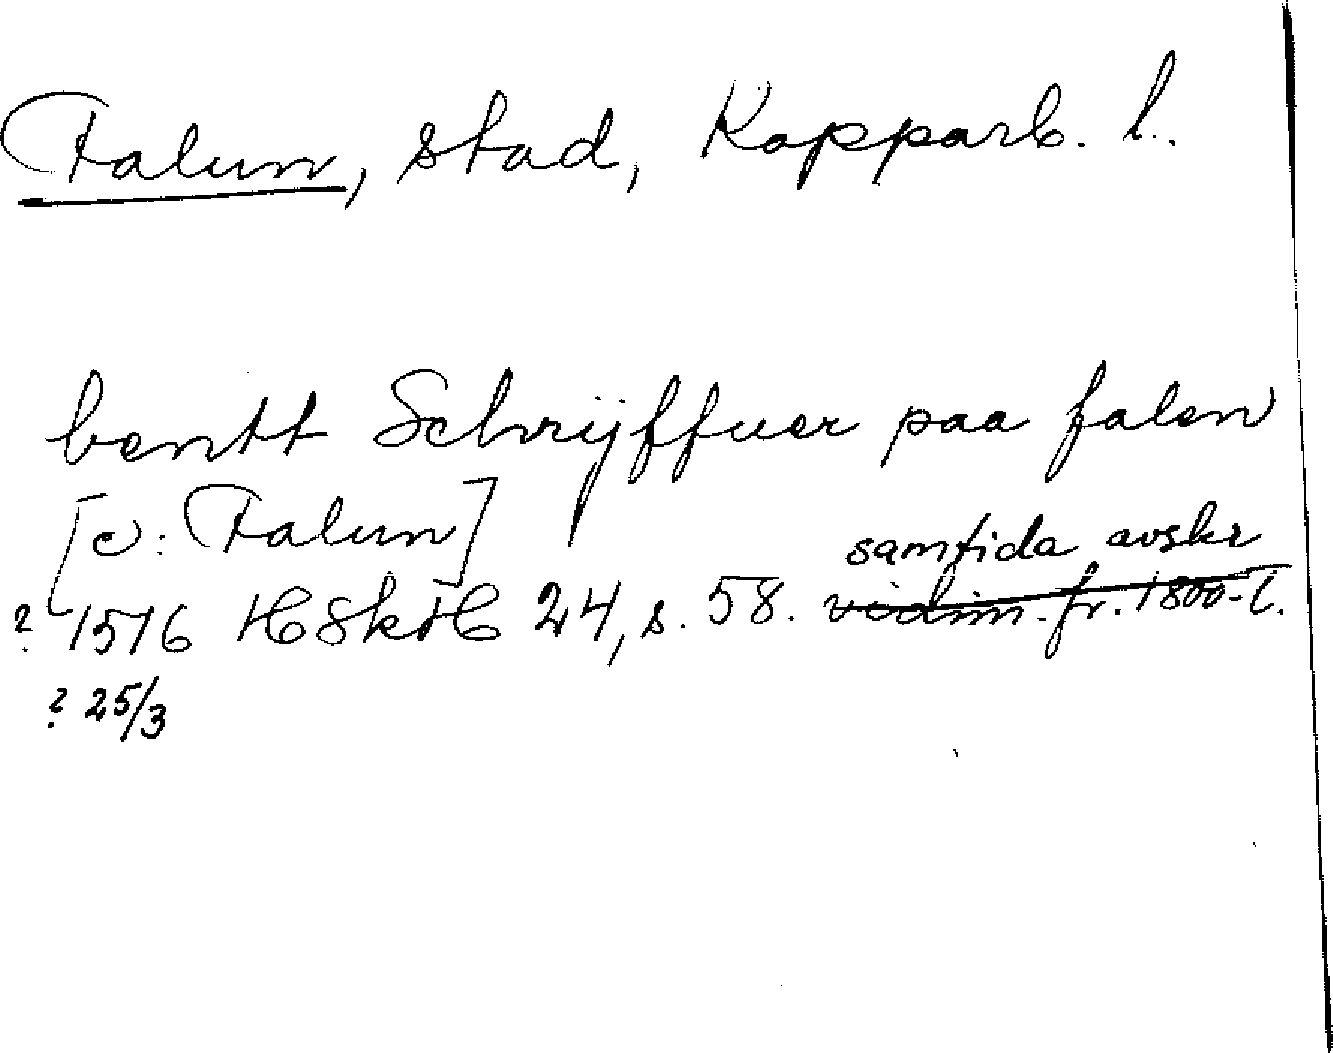 Falun, stad, Kopparb. l.
bentt Schrijffuer paa falen
[ɔ: Falun]
samtida avskr
? 1516 HSkH 24, s. 58. vidim. fr. 1800-t.
? 25/3